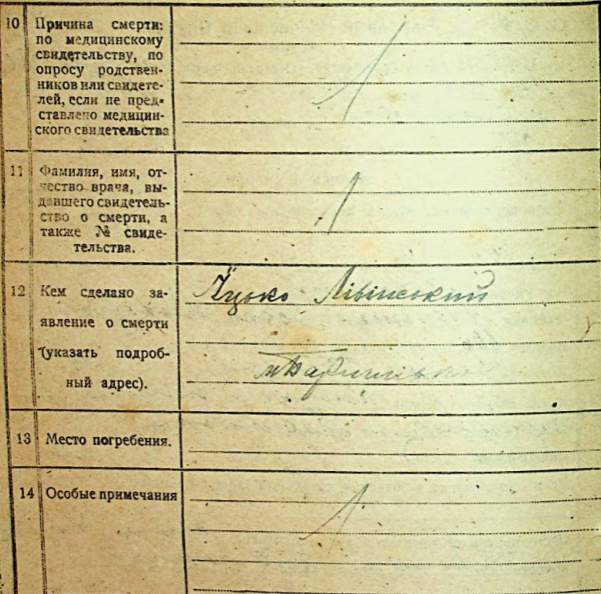 10 Причина смерти:
по медицинскому
свидетельству, по
опросу родствен-
ников или свидете-
лей, если не пред-
ставлено медицин-
ского свидетельства
11 Фамилия, имя, от-
чество врача, вы-
давшего свидетель-
ство о смерти, а
также № свиде-
тельства.
12 Кем сделано за-
явление о смерти
(указать подроб-
ный адрес).
13 Место погребения.
14 Особые примечания